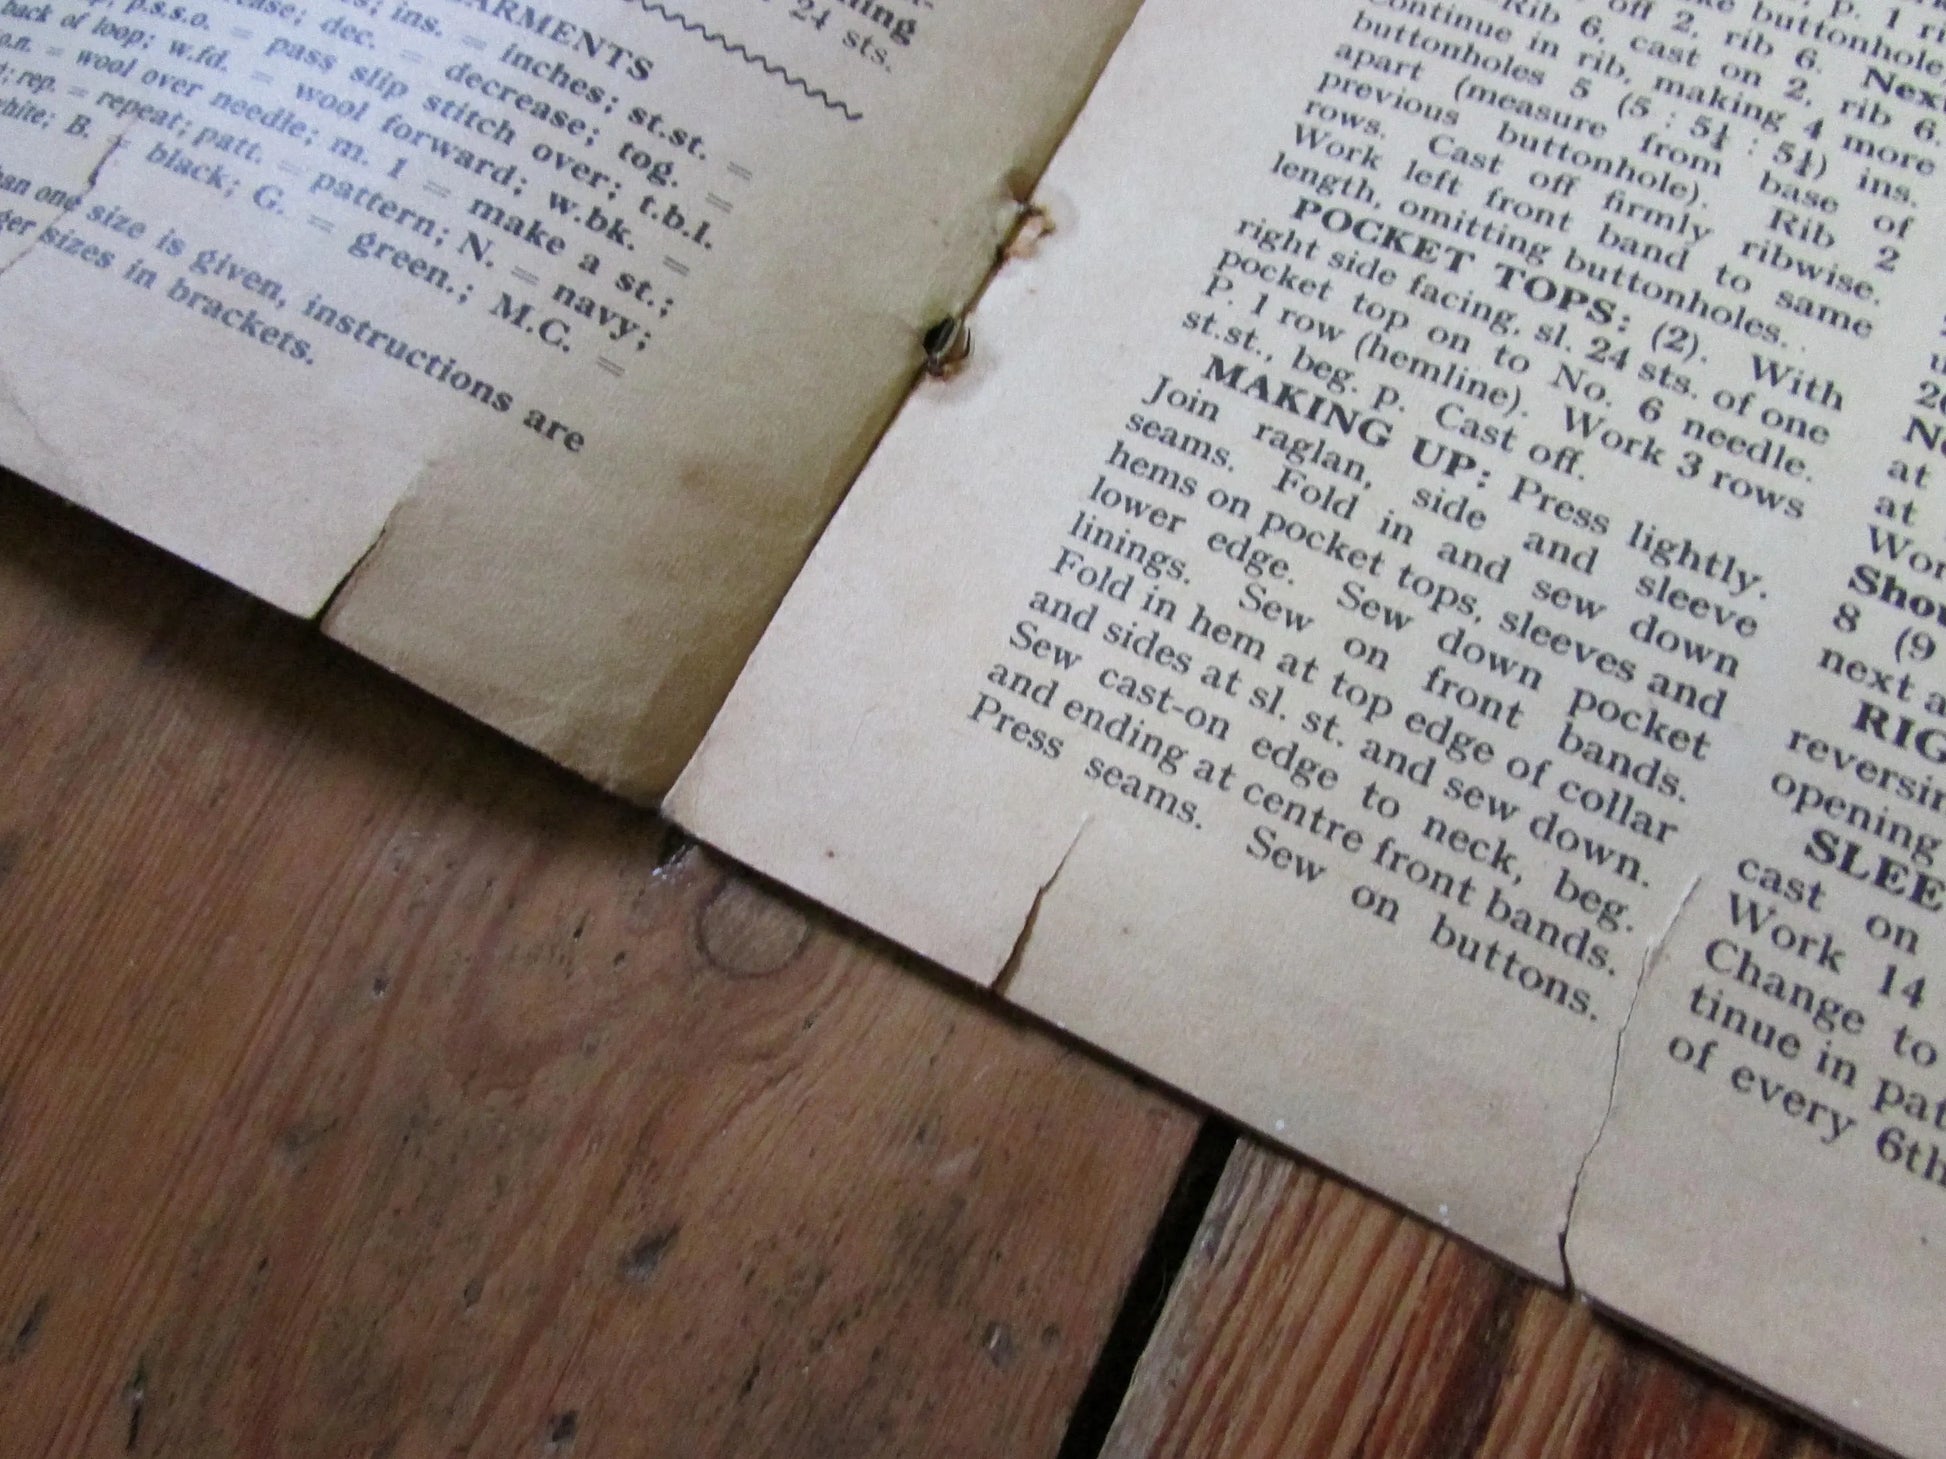 24 sts.
GARMENTS
ins. = inches; st.st. =
dec. = decrease; tog. =
p.s.s.o. = pass slip stitch over; t.b.l.
back of loop; w.fd. = wool forward; w.bk. =
= wool over needle; m. 1 = make a st.;
rep. = repeat; patt. = pattern; N. = navy;
B. = black; G. = green.; M.C. =
one size is given, instructions are
sizes in brackets.
p. 1
buttonhole,
off 2, rib 6. Next
Rib 6, cast on 2, rib 6.
Continue in rib, making 4 more
buttonholes 5 (5 : 5½ : 5½) ins.
apart (measure from base of
previous buttonhole). Rib 2
rows. Cast off firmly ribwise.
Work left front band to same
length, omitting buttonholes.
POCKET TOPS: (2). With
right side facing, sl. 24 sts. of one
pocket top on to No. 6 needle.
P. 1 row (hemline). Work 3 rows
st.st., beg. p. Cast off.
MAKING UP: Press lightly.
Join raglan, side and sleeve
seams. Fold in and sew down
hems on pocket tops, sleeves and
lower edge. Sew down pocket
linings. Sew on front bands.
Fold in hem at top edge of collar
and sides at sl. st. and sew down.
Sew cast-on edge to neck, beg.
and ending at centre front bands.
Press seams. Sew on buttons.
at
at
8 (9
next
opening
cast on
Work 14
Change to
tinue in
of every 6th